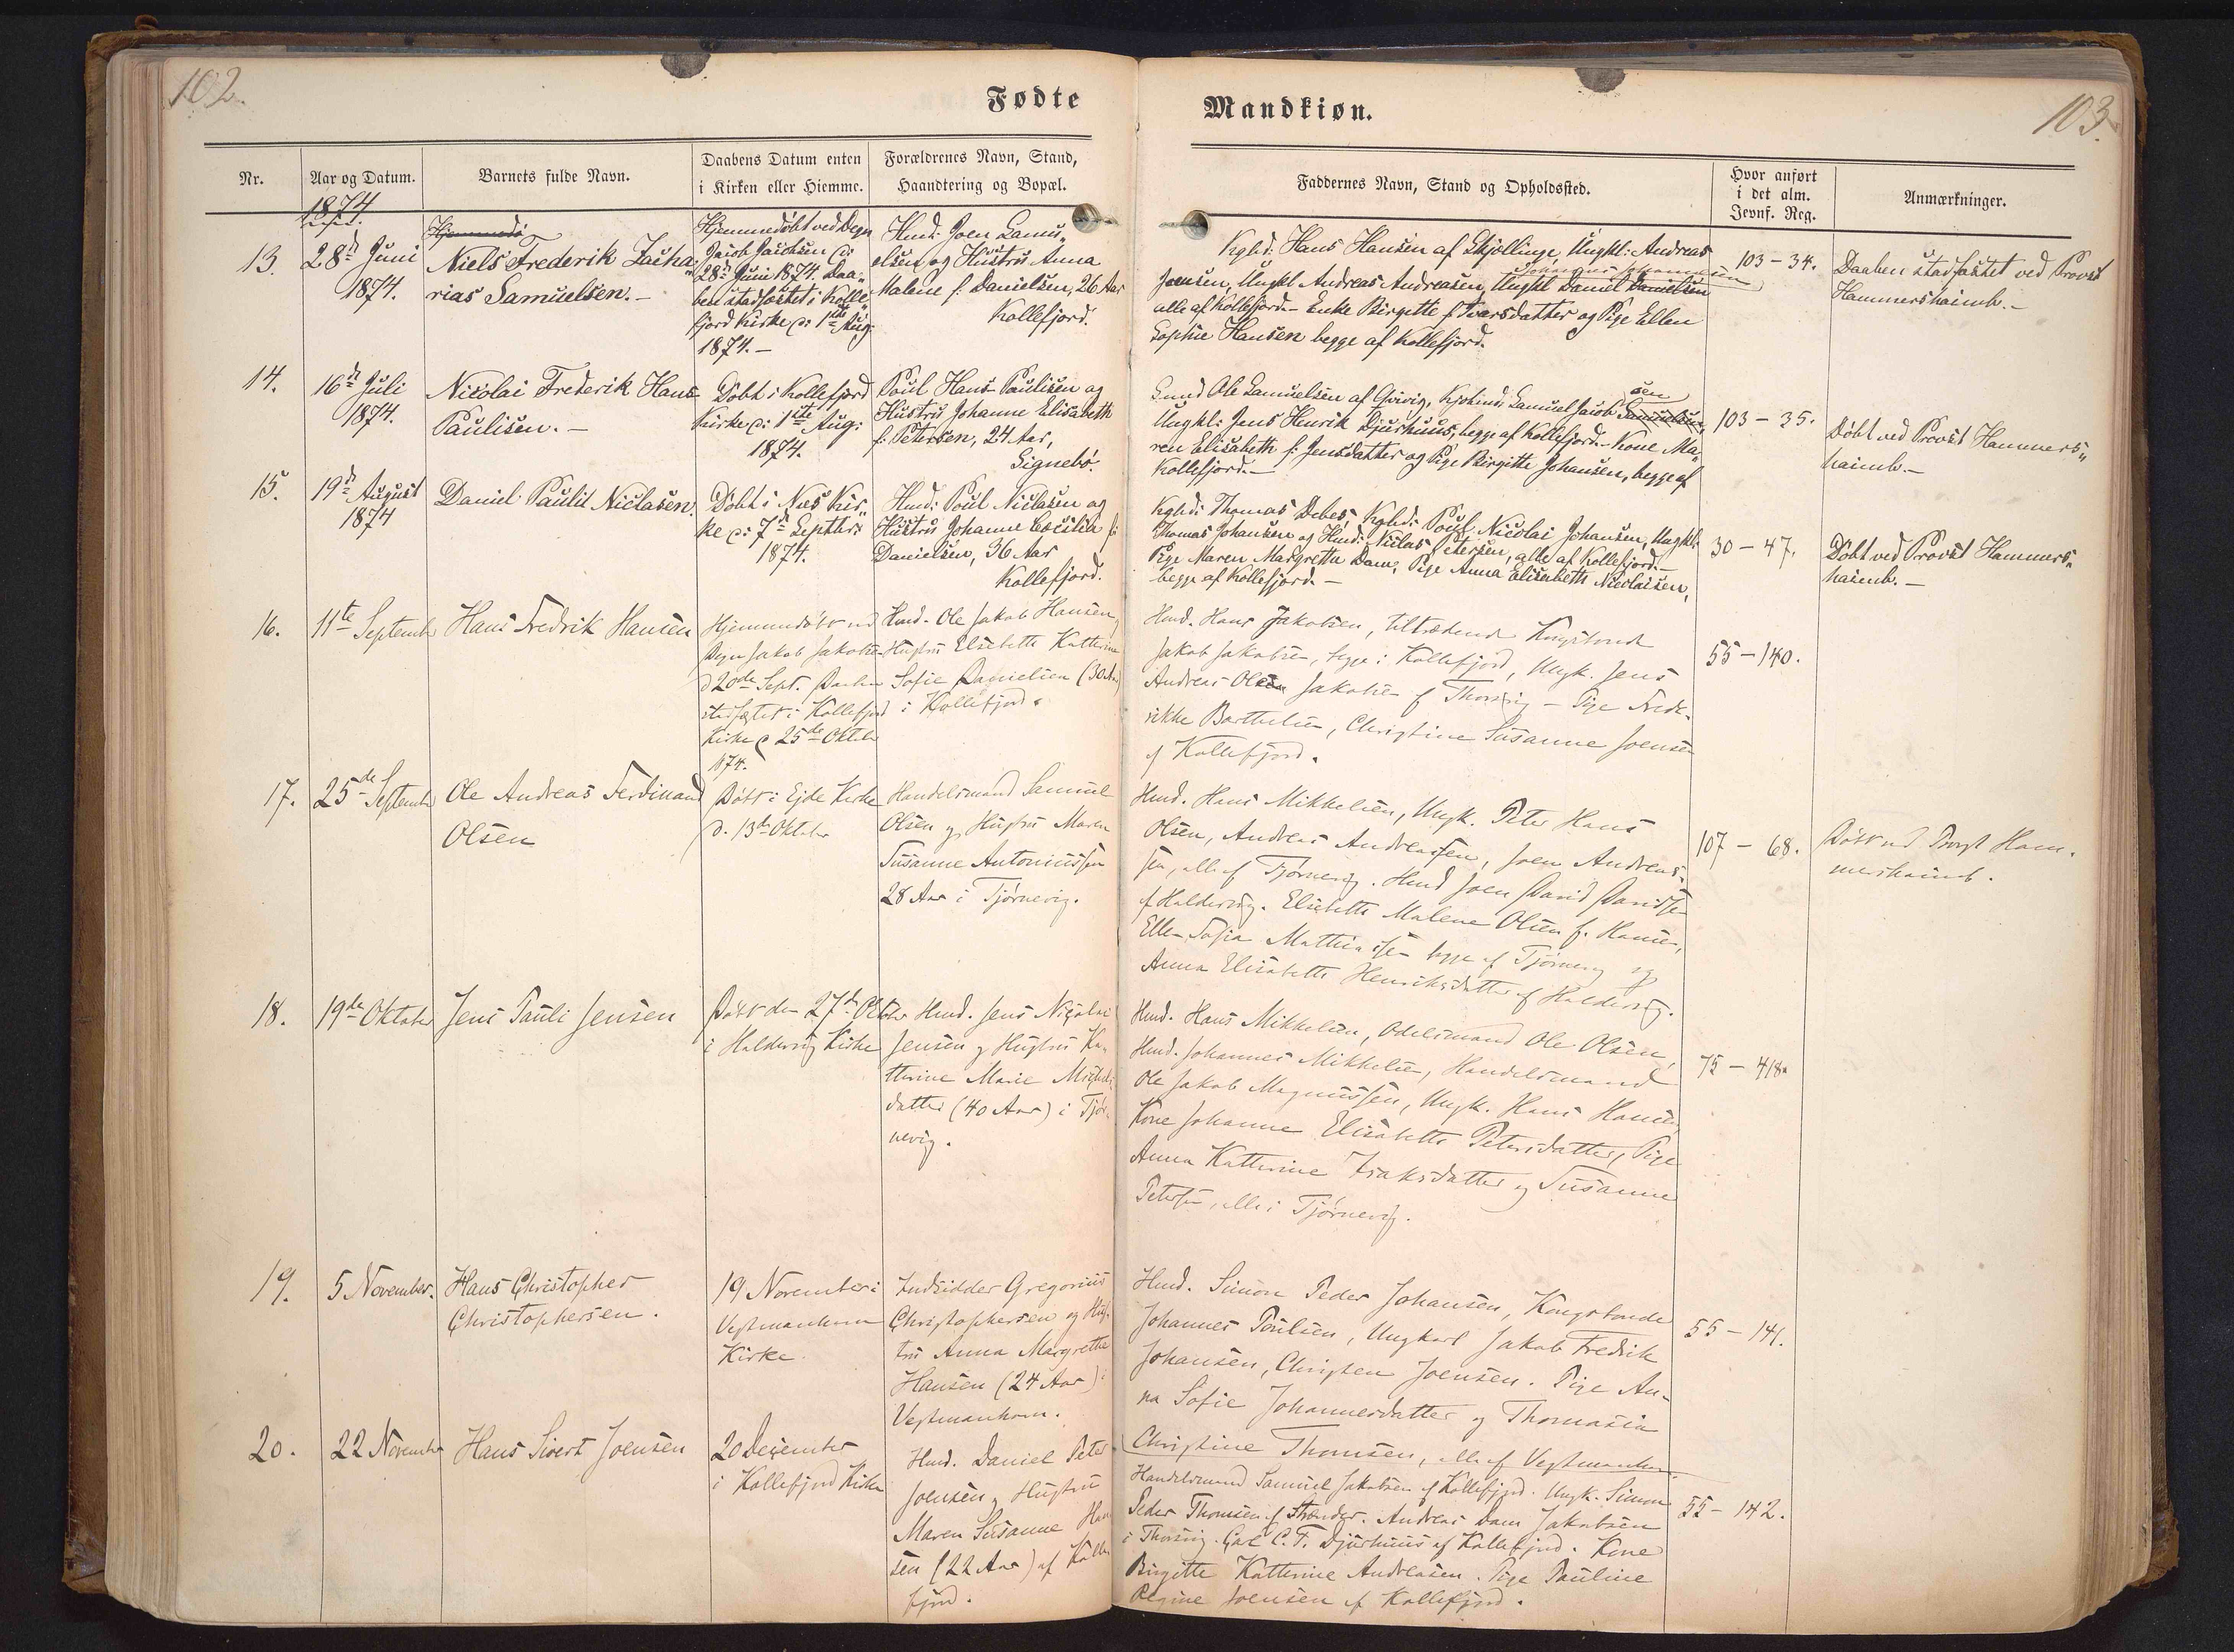 102.
Fødte
Nr.
Aar og Datum.
Barnets fulde Navn.
Daabens Datum enten
i Kirken eller Hiemme.
Forældrenes Navn, Stand,
Haandtering og Bopæl.
1874.
13.
28d Juni
1874.
Hjemmedø
Niels Frederik Zacha„
rias Samuelsen.-
Hjemmedøbt ved Degn
Jacob Jacobsen d:
28d Juni 1874. Daa„
ben stadfæstet i Kolle„
fjord Kirke d: 1ste Aug:
1874.-
Hmd: Joen Samu„
elsen og Hustru Anna
Malene f: Danielsen, 26 Aar
Kollefjord.
14.
16d Juli
1874.
Nicolai Frederik Hans
Paulisen.-
Døbt i Kollefjord
Kirke d: 1ste Aug:
1874.
Poul Hans Paulisen og
Hustru Johanne Elisabeth
f: Petersen, 24 Aar,
Signebø.
15.
19d August
1874
Daniel Paulil Niclasen.
Døbt i Næs Kir„
ke d: 7d Septbr:
1874.
Hmd: Poul Niclasen og
Hustru Johanne Cecilia f:
Danielsen, 36 Aar
Kollefjord.
16.
11te Septemb
Hans Fredrik Hansen
Hjemmedøbt ved
Degn Jakob Jakobsen
d 20de Sept. Daaben
stadfæstet i Kollefjord
Kirke d 25de Oktober
1874.
Hmd. Ole Jakob Hansen,
Hustru Elsebeth Katterine
Sofie Danielsen (30 Aar)
i Kollefjord.
17.
25de September
Ole Andreas Ferdinand
Olsen
Døbt i Ejde Kirke
d. 13de Oktober
Handelsmand Samuel
Olsen og Hustru Maren
Susanne Antoniussen
28 Aar i Tjørnevig.
18.
19de Oktober
Jens Pauli Jensen
Døbt den 27de Oktober
i Haldersvig Kirke
Hmd. Jens Nicolai
Jensen og Hustru Ka„
tterine Marie
datter (40 Aar) i Tjør„
nevig.
19.
5 November.
Hans Christopher
Christophersen.
19 November i
Vestmanhavn
Kirke.
Indsidder Gregorius
Christophersen og Hus„
tru Anna Margrethe
Hansen (24 Aar) i
Vestmanhavn.
20.
22 November
Hans Sivert Joensen
20 December
i Kollefjord Kirke
Hmd. Daniel Peter
Joensen og Hustru
Maren Susanne Han
sen (22 Aar) af Kolle
fjord.
Mandkiøn.
103.
Faddernes Navn, Stand og Opholdssted.
Hvor anført
i det alm.
Jevnf. Reg.
Anmærkninger.
Kgbd: Hans Hansen af Skjellinge, Ungkl: Andreas
Johannes Johannesen
Joensen, Ungkl Andreas Andreasen, Ungkl Daniel Danielsen
alle af Kollefjord.- Enke Birgitte f Ivarsdatter og Pige Ellen
Sophie Hansen begge af Kollefjord.
103-34.
Daaben stadfæstet ved Provst
Hammershaimb.-
sen
Hmd Ole Samuelsen af Qvivig, Kjøbmd: Samuel Jacob Samuelsen,
Ungkl: Jens Henrik Djurhuus, begge af Kollefjord.- Kone Ma„
ren Elisabeth f: Jensdatter og Pige Birgitte Johansen, begge af
Kollefjord.-
103-35.
Døbt ved Provst Hammers„
haimb.-
Kgbd: Thomas Debes, Kgbd: Poul Nicolai Johansen, Ungkl:
Thomas Johansen og Hmd: Niclas Petersen, alle af Kollefjord.-
Pige Maren Margrethe Dam, Pige Anna Elisabeth Nicolaisen,
begge af Kollefjord.-
30-47.
Døbt ved Provst Hammers„
haimb.-
Hmd. Hans Jakobsen, tiltrædende Kongsbonde
Jakob Jakobsen, begge i Kollefjord, Ungk. Jens
Andreas Olsen Jakobsen af Thorsvig - Pige Fred„
rikke Barthelsen, Christine Susanne Joensen
af Kollefjord.
55-140.
Hmd. Hans Mikkelsen, Ungk. Peter Hans
Olsen, Andreas Andreassen, Joen Andreas„
sen, alle af Tjørnevig. Hmd Joen David Davidsen
af Haldersvig. Elsebeth Malene Olsen f. Hansen,
Ellen Sofia Matthiassen begge af Tjørnevig og
Anna Elisabeth Henriksdatter af Haldersvig.
107-68.
Døbt ved Provst Ham„
mershaimb.
Hmd. Hans Mikkelsen, Odelsmand Ole Olsen,
Hmd. Johannes Mikkelsen, Handelsmand
Ole Jakob Magnussen, Ungk. Hans Hansen,
Kone Johanne Elisabeth Petersdatter, Pige
Anna Katterine Isaksdatter og Susanne
Petersen, alle i Tjørnevig.
75-418.
Hmd. Simon Peder Johansen, Kongsbonde
Johannes Poulsen, Ungkarl Jakob Fredrik
Johansen, Christen Joensen. Pige An„
na Sofie Johannesdatter og Thomasia
Christine Thomsen, alle af Vestmanhavn.
55-141.
Handelsmand Samuel Jakobsen af Kollefjord. Ungk. Simon
Peder Thomsen af Strænder. Andreas Dam Jakobsen
i Thorsvig. Carl C. F. Djurhuus af Kollefjord. Kone
Birgitte Katterine Andreasen. Pige Pauline
Regine Joensen af Kollefjord.
55-142.